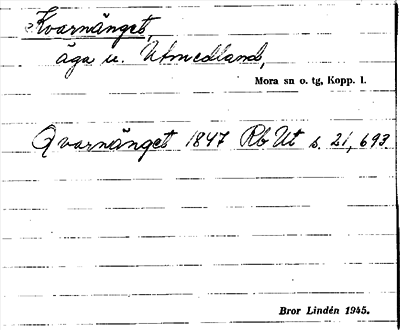 Kvarnänget,
äga u. Utmedland,
Mora sn o. tg, Kopp. l.
Qvarnänget 1847 Rb Ut s. 21, 693.
Bror Lindén 1945.